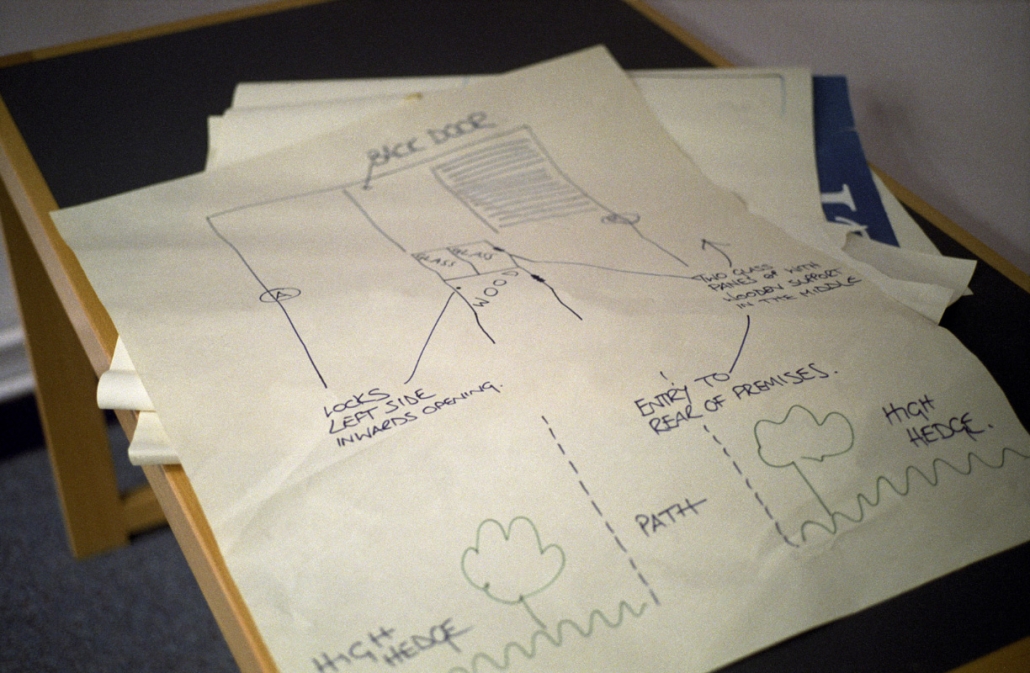 BACK DOOR
GLASS
GLASS
WOOD
A
TWO GLASS
PANES OF WITH
WOODEN SUPPORT
IN THE MIDDLE
LOCKS
LEFT SIDE
INWARDS OPENING.
ENTRY TO
REAR OF PREMISES.
HIGH
HEDGE.
PATH
HIGH
HEDGE